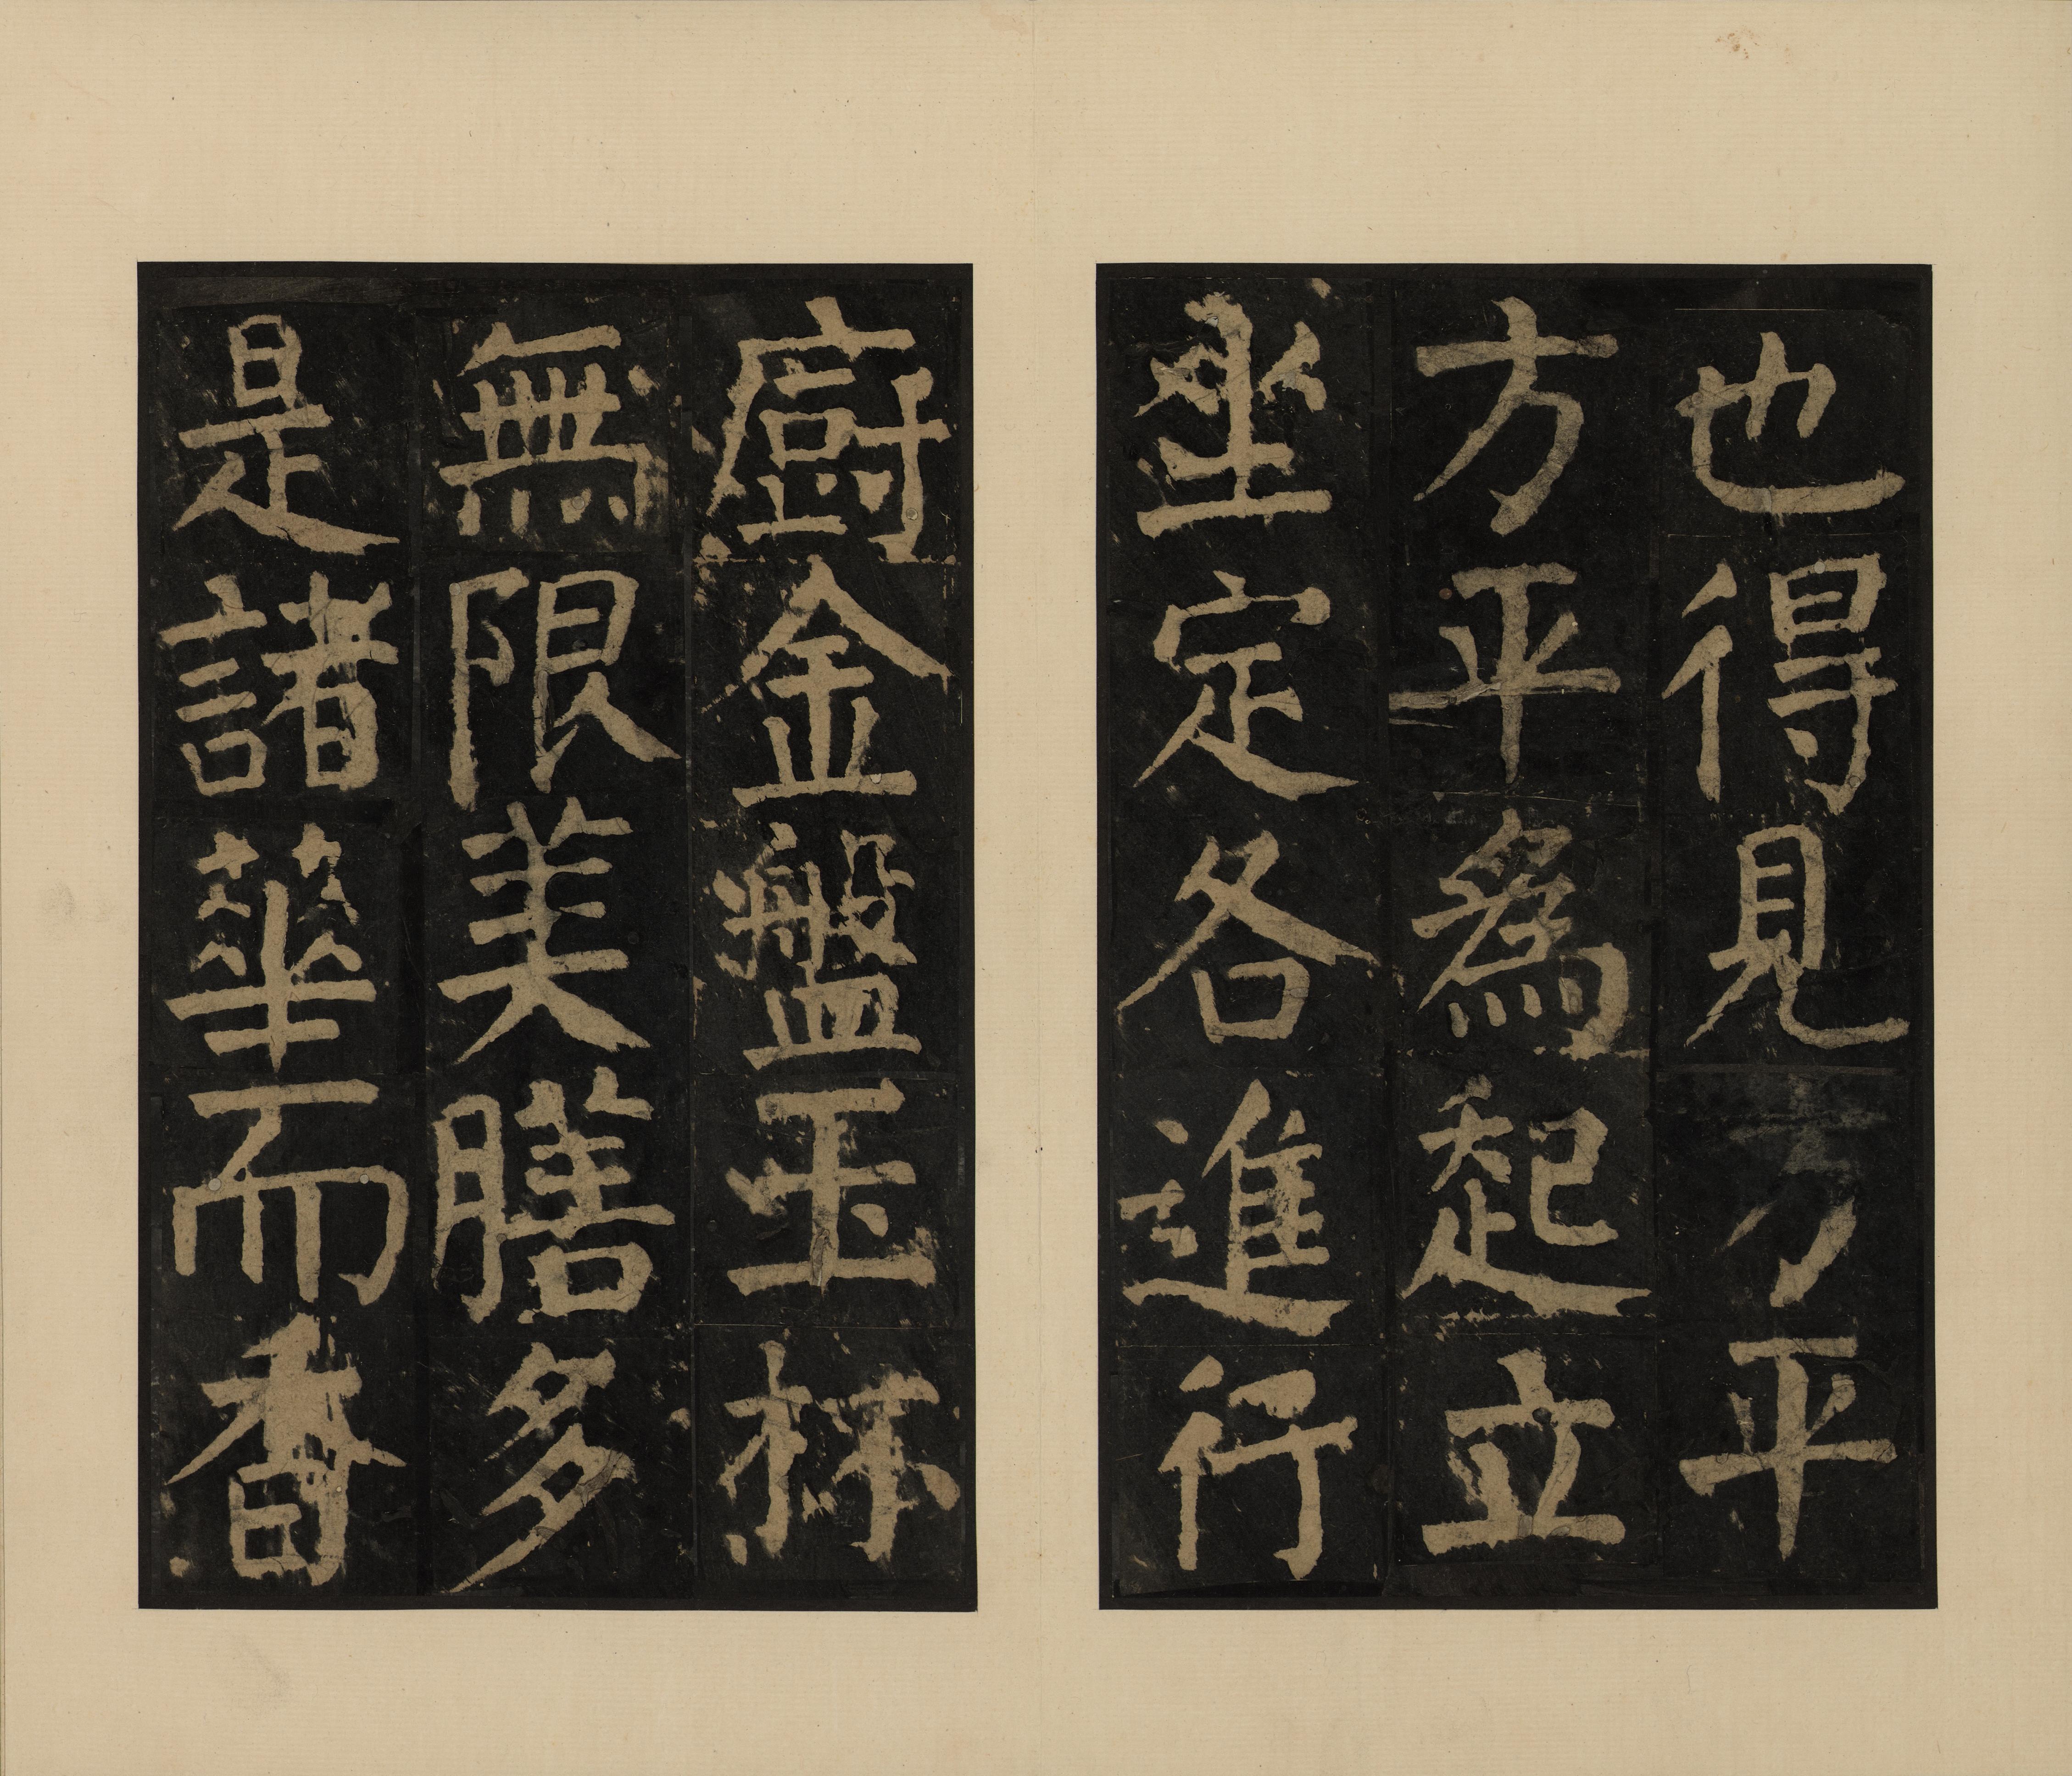 也得見方平
方平為起立
坐定各進行
廚金盤玉杯
無限美膳多
是諸華而香